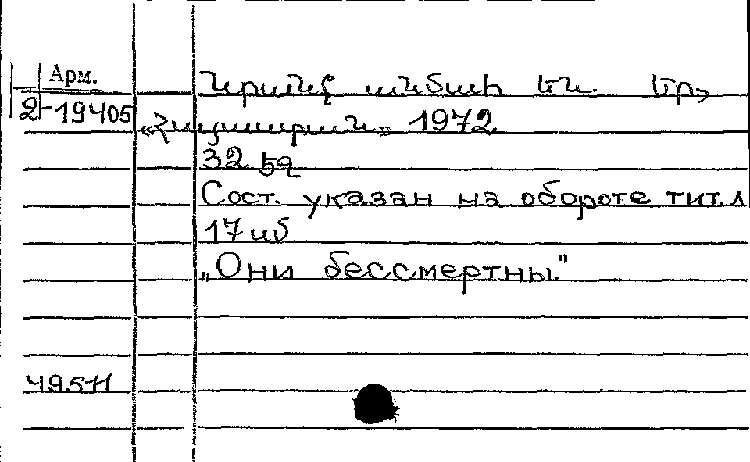 Арм.
2-19405
Նրանք անմահ են. Եր.,
«Հայաստան» 1972
32 էջ
Сост. указан на обороте тит. л
17 սմ
„Они бессмертны"
49511